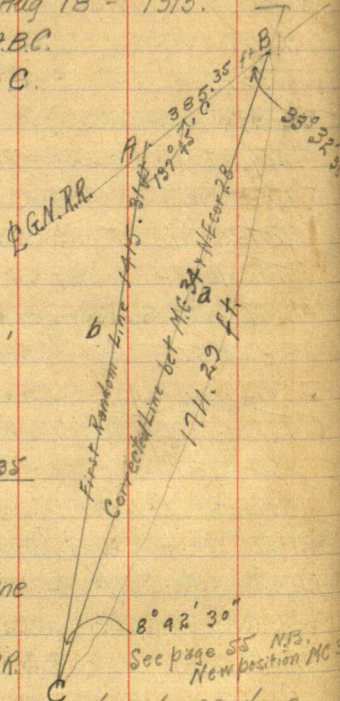 Aug 18 - 1915.
A.B.C.
C.
B
385.35 ft
C
A
137° 45'
33° 32'
℄ G.N.R.R.
b
First Random Line 1415.31 ft
Corrected Line bet M.C. 34 & N.E cor 28
a
1711.29 ft.
35
ine
8° 42' 30"
See page 55 N.B.
New position MC 3
R.
C